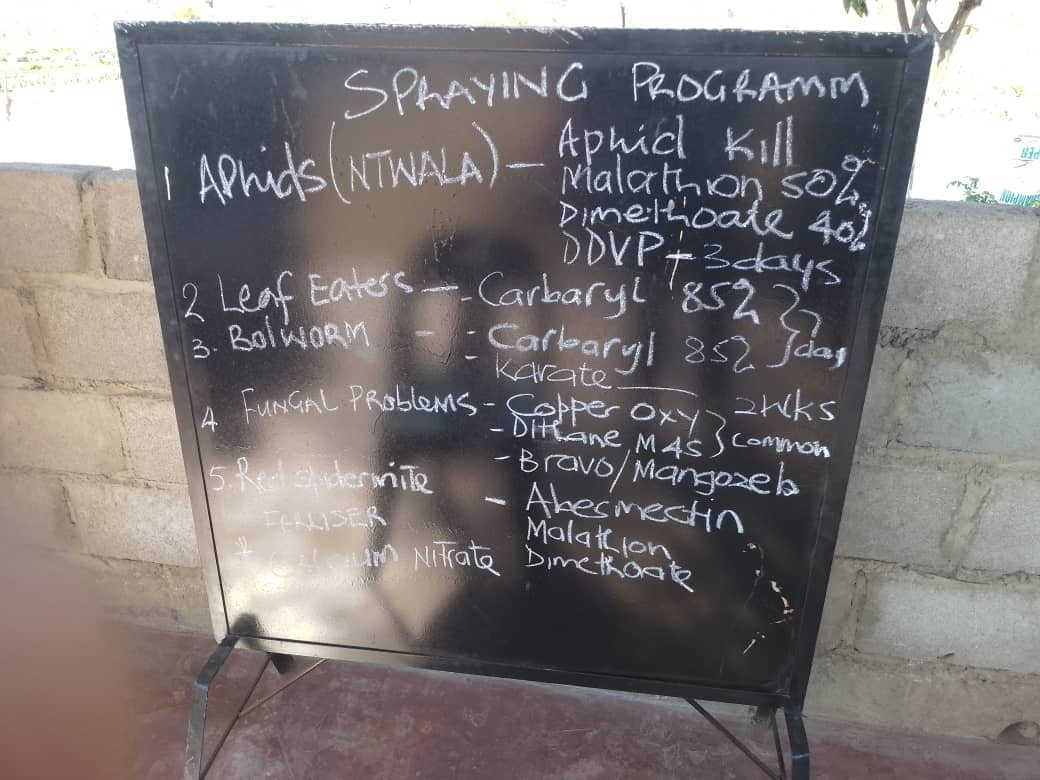 SPRAYING PROGRAMM
1 APhids (NTWALA) - Aphid Kill
Malathion 50%
Dimethoate 40%
DDVP - 3days
2 Leaf Eaters - - Carbaryl 85% } 7
3. BolWORM - - Carbaryl 85% } day
- Karate
4 FUNGAL PRoblems - Copper oxy } 2Wks
- DITHane M45 } common
- Bravo/Mangozeb
5. Red spidermite - Abecmectin
Malathion
* NITrate Dimethoate